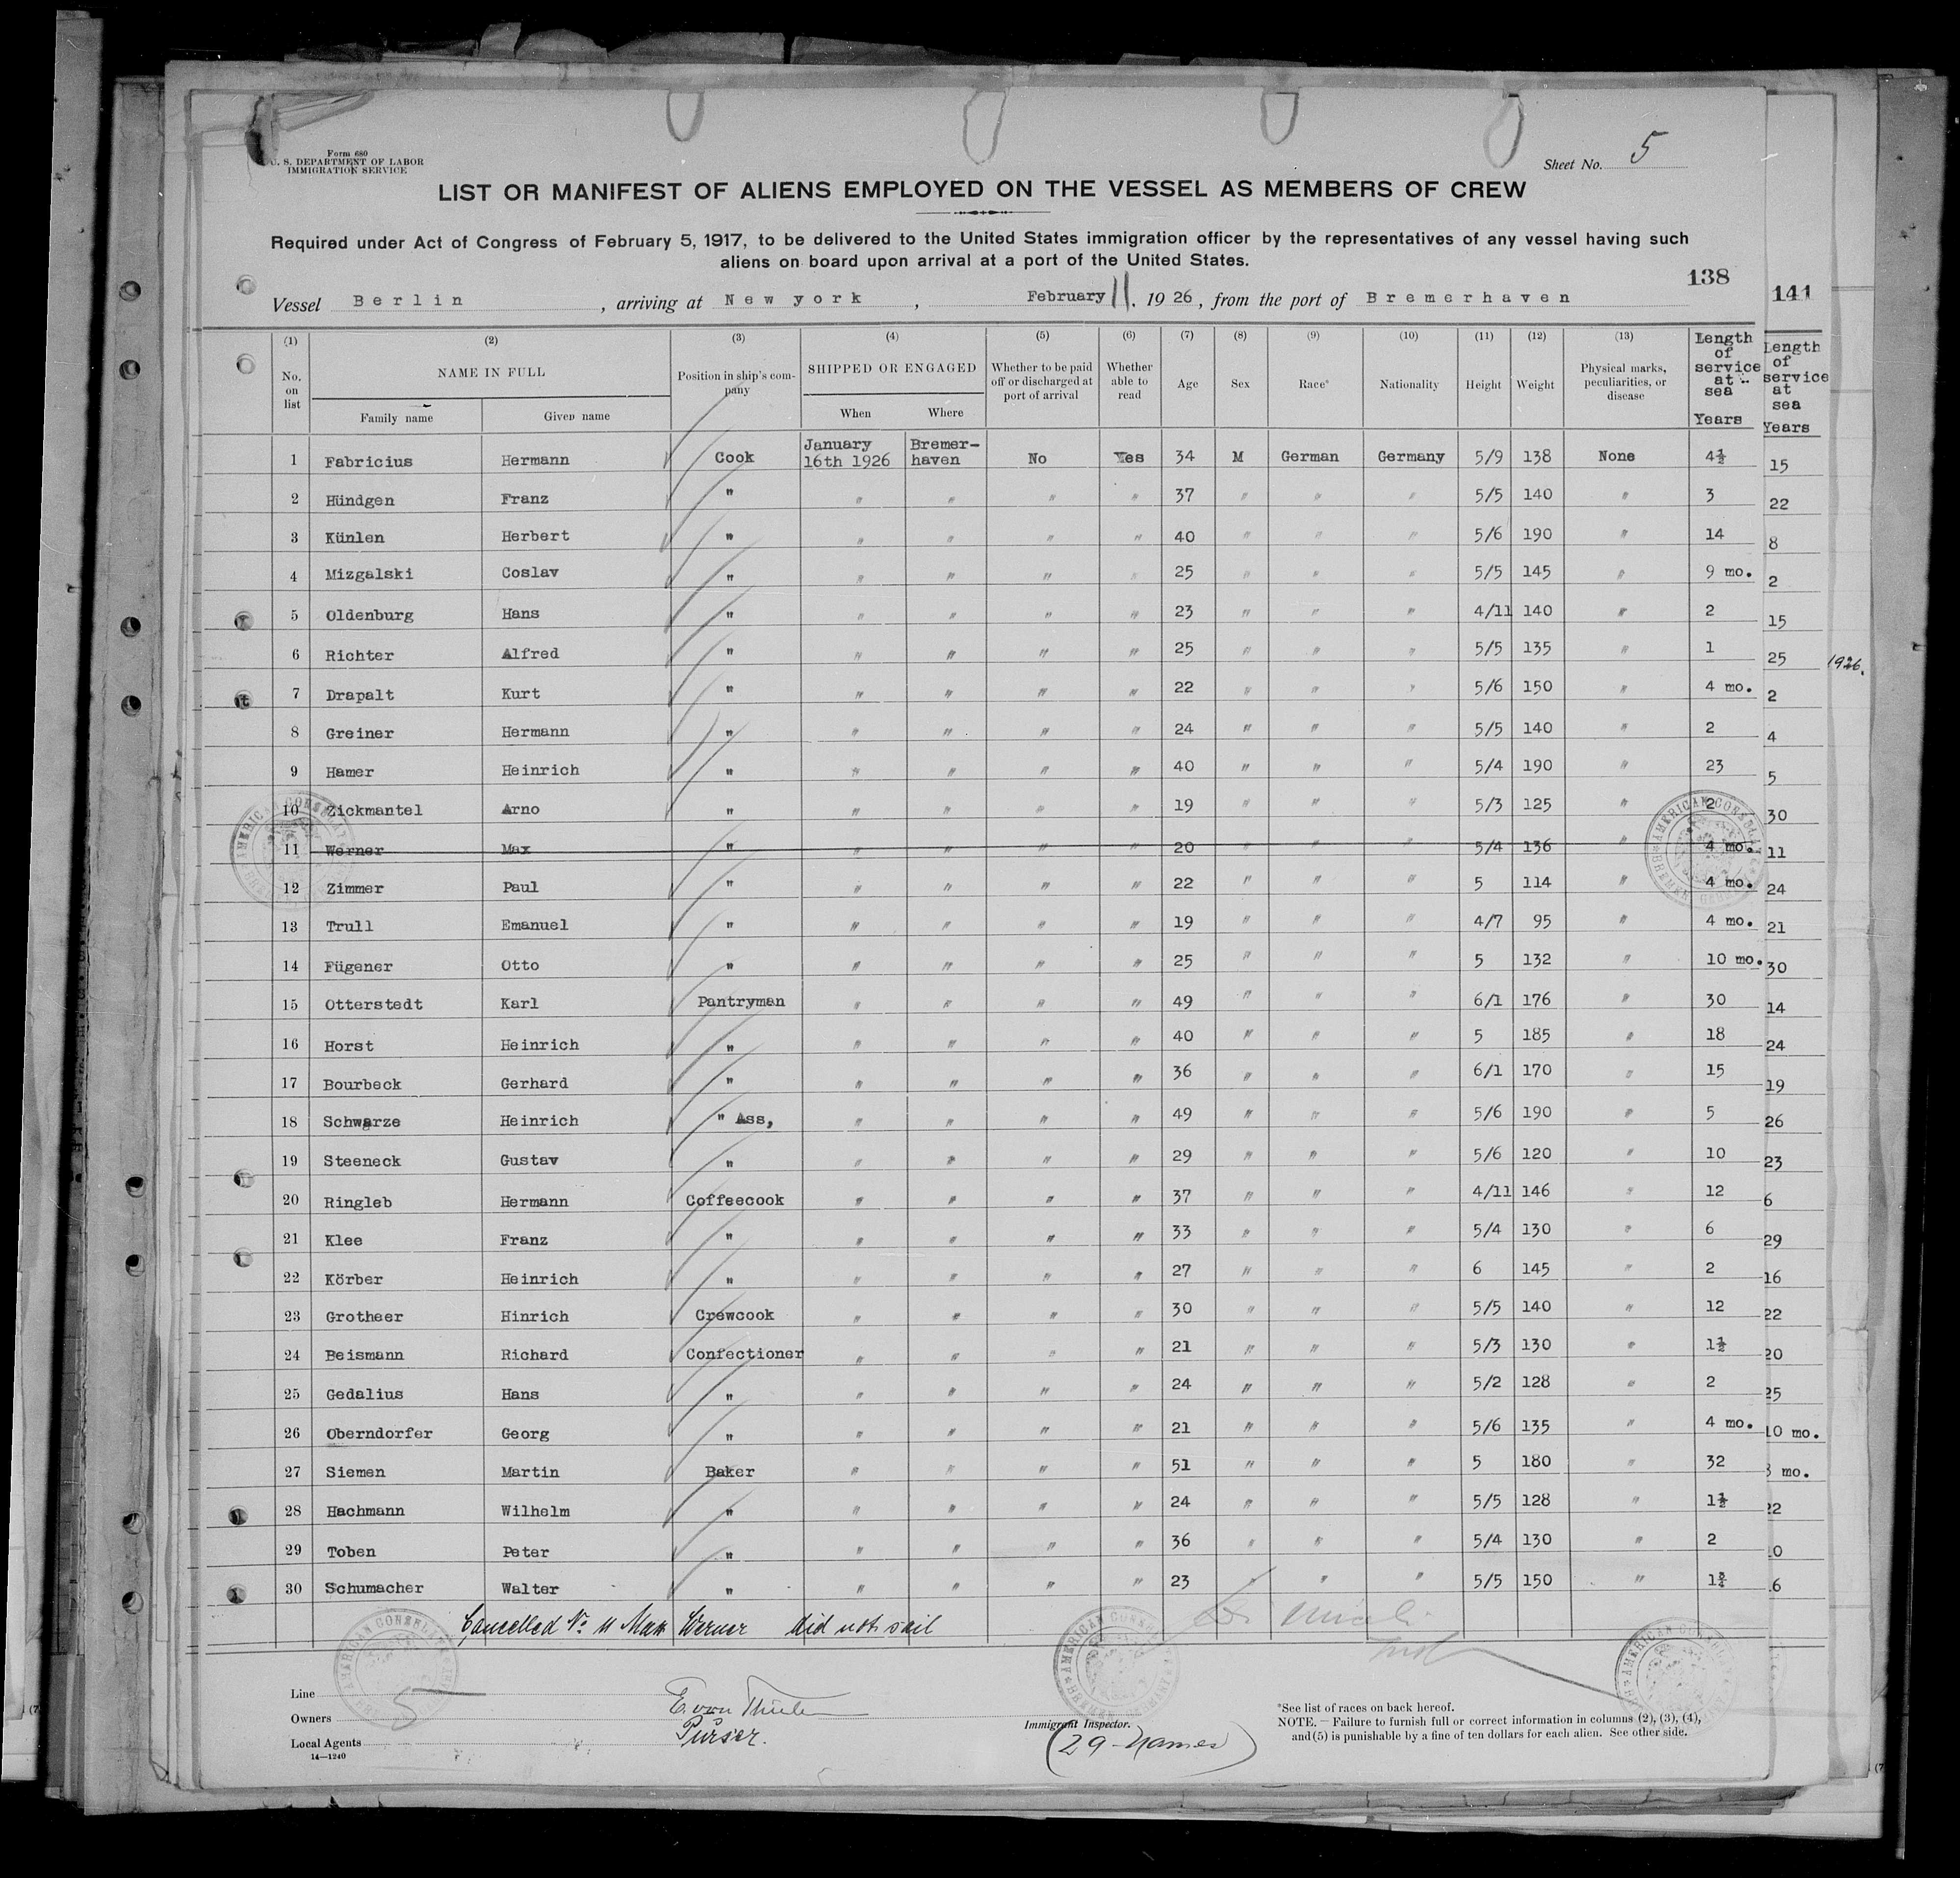 Form 680
U. S. DEPARTMENT OF LABOR
IMMIGRATION SERVICE
Sheet No. 5
LIST OR MANIFEST OF ALIENS EMPLOYED ON THE VESSEL AS MEMBERS OF CREW
Required under Act of Congress of February 5, 1917, to be delivered to the United States immigration officer by the representatives of any vessel having such
aliens on board upon arrival at a port of the United States.
138
141
Vessel Berlin, arriving at New york, February 11, 1926, from the port of Bremerhaven
(1) No. on list (2) NAME IN FULL Family name Given name (3) Position in ship's company (4) SHIPPED OR ENGAGED When Where (5) Whether to be paid off or discharged at port of arrival (6) Whether able to read (7) Age (8) Sex (9) Race* (10) Nationality (11) Height (12) Weight (13) Physical marks, peculiarities, or disease Length of service at sea Years
Length of service at sea Years
1 Fabricius Hermann Cook January 16th 1926 Bremer-haven No Yes 34 M German Germany 5/9 138 None 4½ 15
2 Hündgen Franz " " " " " 37 " " " 5/5 140 " 3 22
3 Künlen Herbert " " " " " 40 " " " 5/6 190 " 14 8
4 Mizgalski Coslav " " " " " 25 " " " 5/5 145 " 9 mo. 2
5 Oldenburg Hans " " " " " 23 " " " 4/11 140 " 2 15
6 Richter Alfred " " " " " 25 " " " 5/5 135 " 1 25 1926.
7 Drapalt Kurt " " " " " 22 " " " 5/6 150 " 4 mo. 2
8 Greiner Hermann " " " " " 24 " " " 5/5 140 " 2 4
9 Hamer Heinrich " " " " " 40 " " " 5/4 190 " 23 5
10 Zickmantel Arno " " " " " 19 " " " 5/3 125 " 2 30
11 Werner Max " " " " " 20 " " " 5/4 136 " 4 mo. 11
12 Zimmer Paul " " " " " 22 " " " 5 114 " 4 mo. 24
13 Trull Emanuel " " " " " 19 " " " 4/7 95 " 4 mo. 21
14 Fügener Otto " " " " " 25 " " " 5 132 " 10 mo. 30
15 Otterstedt Karl Pantryman " " " " 49 " " " 6/1 176 " 30 14
16 Horst Heinrich " " " " " 40 " " " 5 185 " 18 24
17 Bourbeck Gerhard " " " " " 36 " " " 6/1 170 " 15 19
18 Schwarze Heinrich " Ass, " " " " 49 " " " 5/6 190 " 5 26
19 Steeneck Gustav " " " " " 29 " " " 5/6 120 " 10 23
20 Ringleb Hermann Coffeecook " " " " 37 " " " 4/11 146 " 12 6
21 Klee Franz " " " " " 33 " " " 5/4 130 " 6 29
22 Körber Heinrich " " " " " 27 " " " 6 145 " 2 16
23 Grotheer Hinrich Crewcook " " " " 30 " " " 5/5 140 " 12 22
24 Beismann Richard Confectioner " " " " 21 " " " 5/3 130 " 1½ 20
25 Gedalius Hans " " " " " 24 " " " 5/2 128 " 2 25
26 Oberndorfer Georg " " " " " 21 " " " 5/6 135 " 4 mo. 10 mo.
27 Siemen Martin Baker " " " " 51 " " " 5 180 " 32 mo.
28 Hachmann Wilhelm " " " " " 24 " " " 5/5 128 " 1½ 22
29 Toben Peter " " " " " 36 " " " 5/4 130 " 2
30 Schumacher Walter " " " " " 23 " " " 5/5 150 "
Cancelled No 11 Max Werner did not sail
AMERICAN CONSULATE BREMEN GERMANY
Line
Owners
Local Agents
14—1240
5
Purser.
Immigrant Inspector.
(29 names)
*See list of races on back hereof.
NOTE.—Failure to furnish full or correct information in columns (2), (3), (4),
and (5) is punishable by a fine of ten dollars for each alien. See other side.